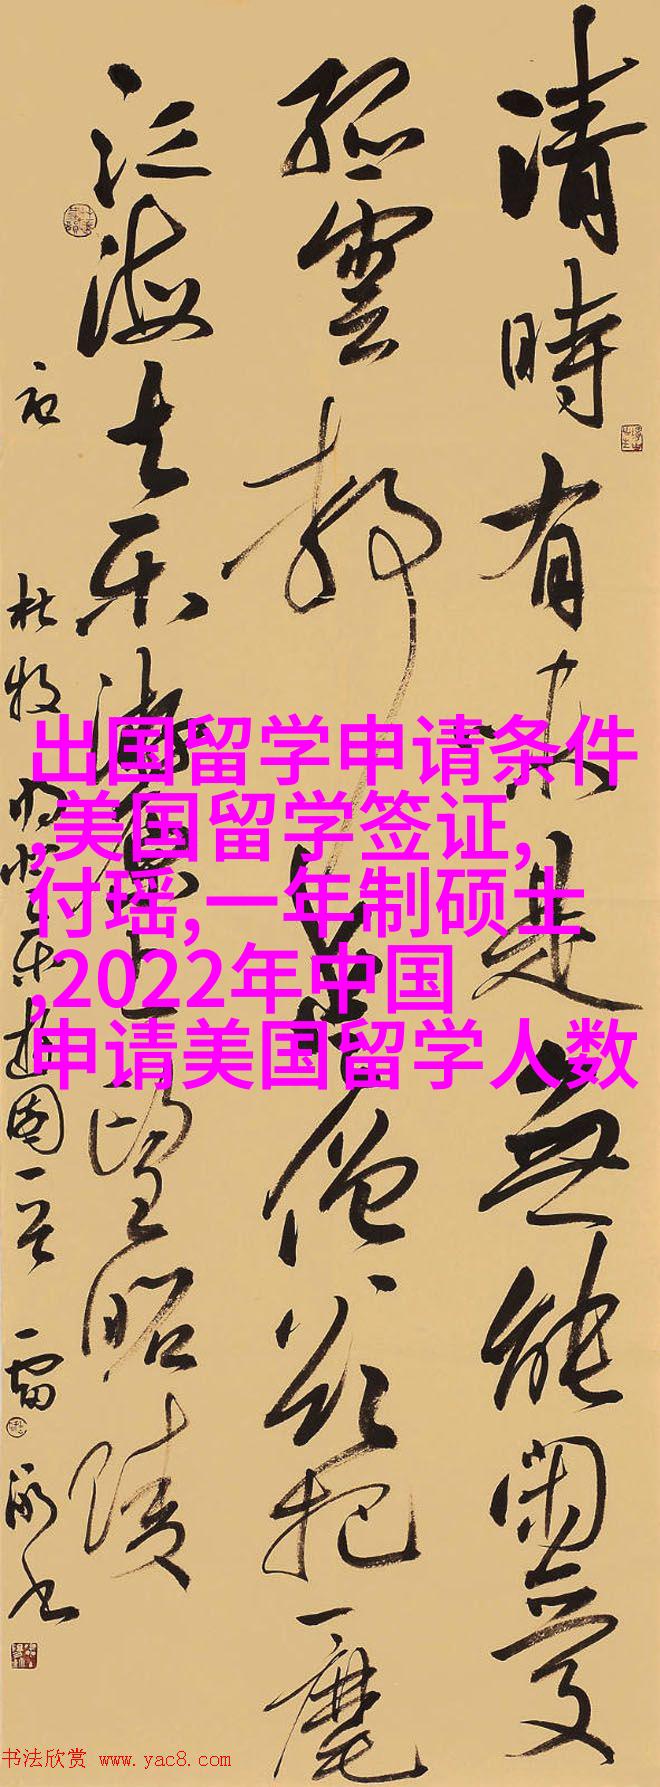 清時有味是無能閑愛
孤雲静愛僧欲把一麾
江海去乐遊原上望昭陵
右 杜牧 登乐遊園一首 雷 書
出国留学申请条件
,美国留学签证,
付瑶,一年制硕士
,2022年中国
申请美国留学人数
书法欣赏 www.yac8.com